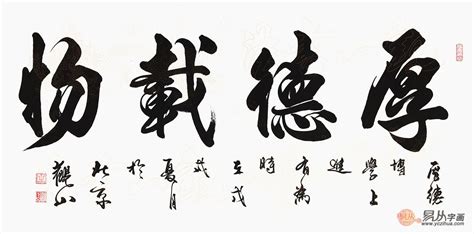 厚德載物
厚德
博
學上
進
有為
時
在戊
戌
夏月
於
北京
觀山
易从字画
www.yczihua.com